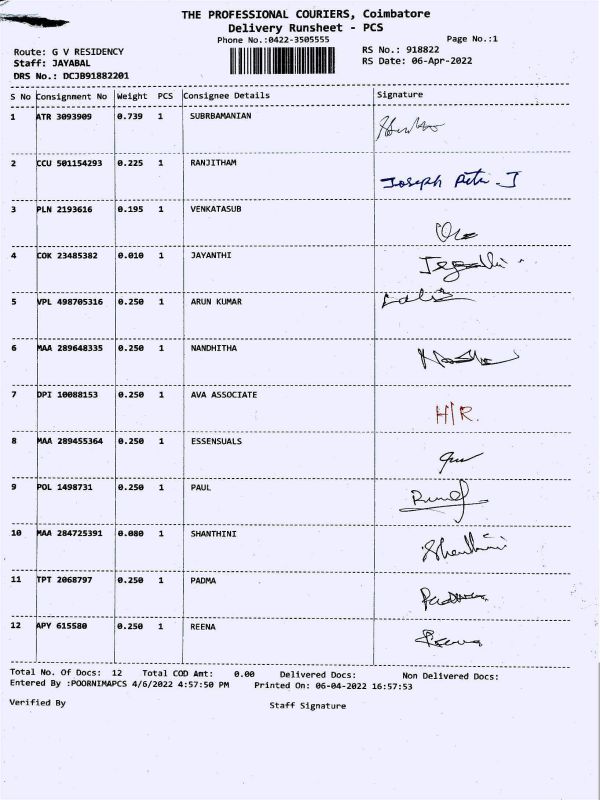 THE PROFESSIONAL COURIERS, Coimbatore
Delivery Runsheet - PCS
Phone No.:0422-3505555
Page No.:1
Route: G V RESIDENCY
RS No.: 918822
Staff: JAYABAL
RS Date: 06-Apr-2022
DRS No.: DCJB91882201
S No Consignment No Weight PCS Consignee Details Signature
1 ATR 3093909 0.739 1 SUBRBAMANIAN
2 CCU 501154293 0.225 1 RANJITHAM Joseph Pete. J
3 PLN 2193616 0.195 1 VENKATASUB
4 COK 23485382 0.010 1 JAYANTHI
5 VPL 498705316 0.250 1 ARUN KUMAR
6 MAA 289648335 0.250 1 NANDHITHA
7 DPI 10088153 0.250 1 AVA ASSOCIATE H/R.
8 MAA 289455364 0.250 1 ESSENSUALS
9 POL 1498731 0.250 1 PAUL
10 MAA 284725391 0.080 1 SHANTHINI Shanthini
11 TPT 2068797 0.250 1 PADMA
12 APY 615580 0.250 1 REENA Reena
Total No. Of Docs: 12 Total COD Amt: 0.00 Delivered Docs: Non Delivered Docs:
Entered By :POORNIMAPCS 4/6/2022 4:57:50 PM Printed On: 06-04-2022 16:57:53
Verified By Staff Signature